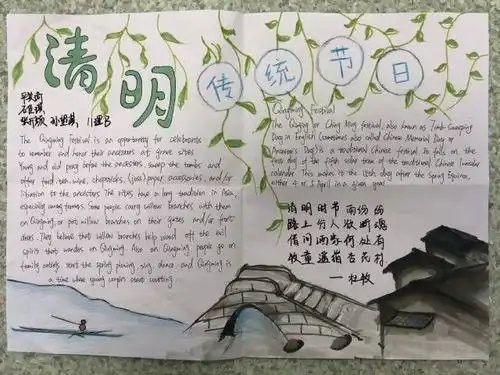 清明
传统节日
The Qingming Festival is an opportunity for celebrants
to remember and honor their ancestors at grave sites.
Young and old pray before the ancestors, sweep the tombs and
offer food, tea, wine, chopsticks, (joss) paper accessories, and/or
libation to the ancestors. The rites have a long tradition in Asia,
especially among farmers. Some people carry willow branches with them
on Qingming, or put willow branches on their gates and/or front
doors. They believe that willow branches help ward off the evil
spirit that wanders on Qingming. Also on Qingming, people go on
family outings, start the spring plowing, sing, dance, and Qingming is
a time where young couples start courting.
Qingming Festival
The Qingming or Ching Ming festival, also known as Tomb-Sweeping
Day in English (sometimes also called Chinese Memorial Day or
Ancestors' Day) is a traditional Chinese festival on the
first day of the fifth solar term of the traditional Chinese lunisolar
calendar. This makes it the 15th day after the Spring Equinox,
either 4 or 5 April in a given year
清明时节雨纷纷
路上行人欲断魂
借问酒家何处有
牧童遥指杏花村
—杜牧